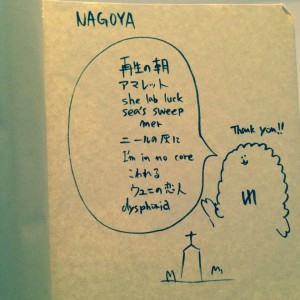 NAGOYA
再生の朝
アマレット
she lab luck
sea's sweep
mer
ニールの灰に
I'm in no core
こわれる
ウユニの恋人
dysphoria
Thank you!!